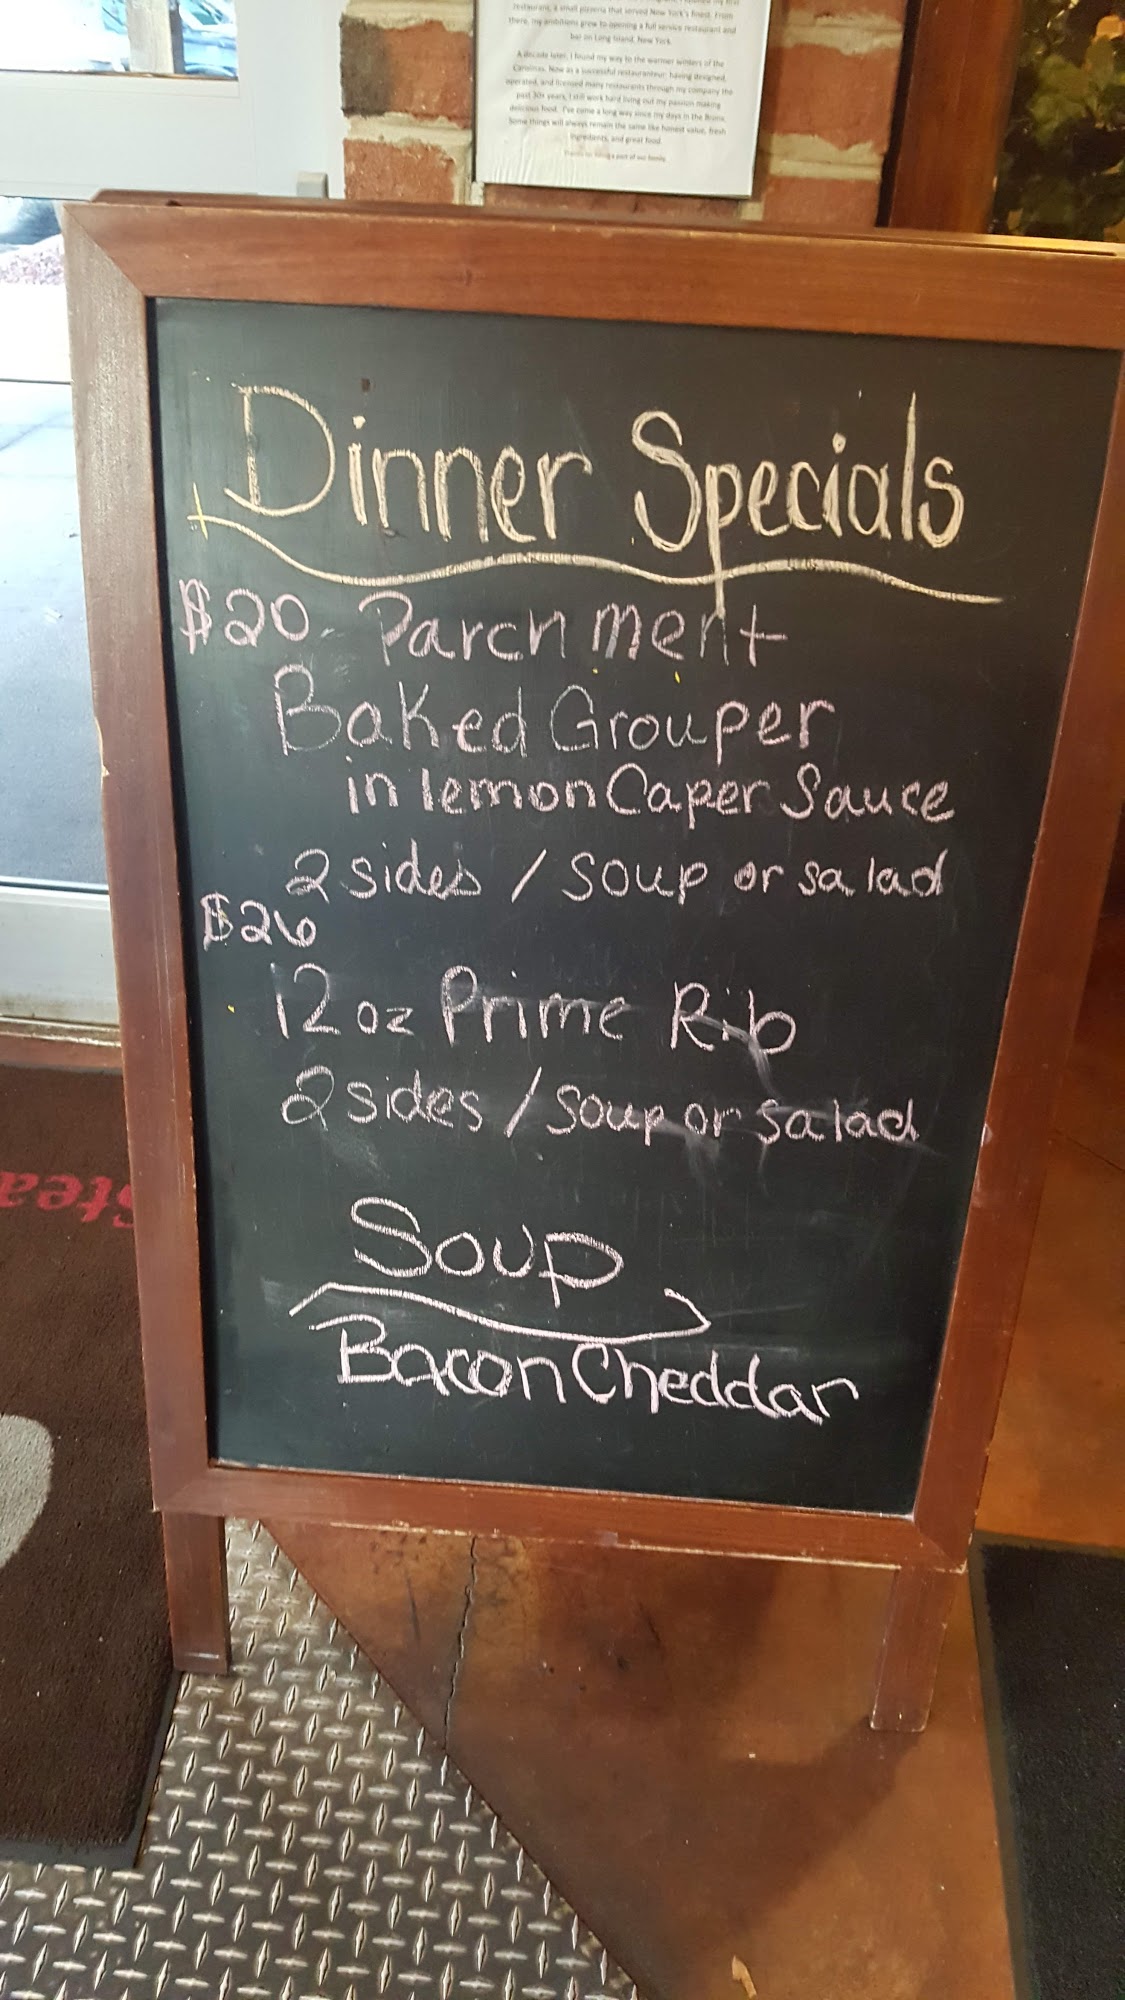 restaurant, a small pizzeria that served New York's finest. From
there, my ambitions grew to opening a full service restaurant and
bar on Long Island, New York.
A decade later, I found my way to the warmer winters of the
Carolinas. Now as a successful restauranteur; having designed,
operated, and licensed many restaurants through my company the
past 30+ years, I still work hard living out my passion making
delicious food. I've come a long way since my days in the Bronx.
Some things will always remain the same like honest value, fresh
ingredients, and great food.
Thanks for being a part of our family.
Dinner Specials
$20 Parchment
Baked Grouper
in lemon Caper Sauce
2 sides / soup or salad
$26
12 oz Prime Rib
2 sides / soup or salad
Soup
Bacon Cheddar
Stea